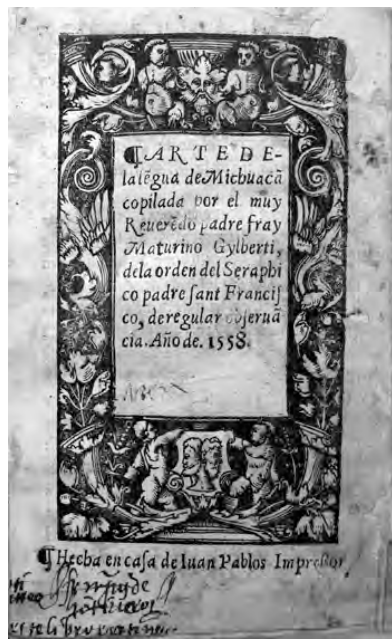 ¶ARTE DE-
la lẽgua de Michuacã
copilada por el muy
Reuerẽdo padre fray
Maturino Gylberti,
dela orden del Seraphi
co padre ſant Franciſ
co, de regular obſeruã
cia. Año de. 1558.
¶ Hecha en caſa de Iuan Pablos Impreſſor